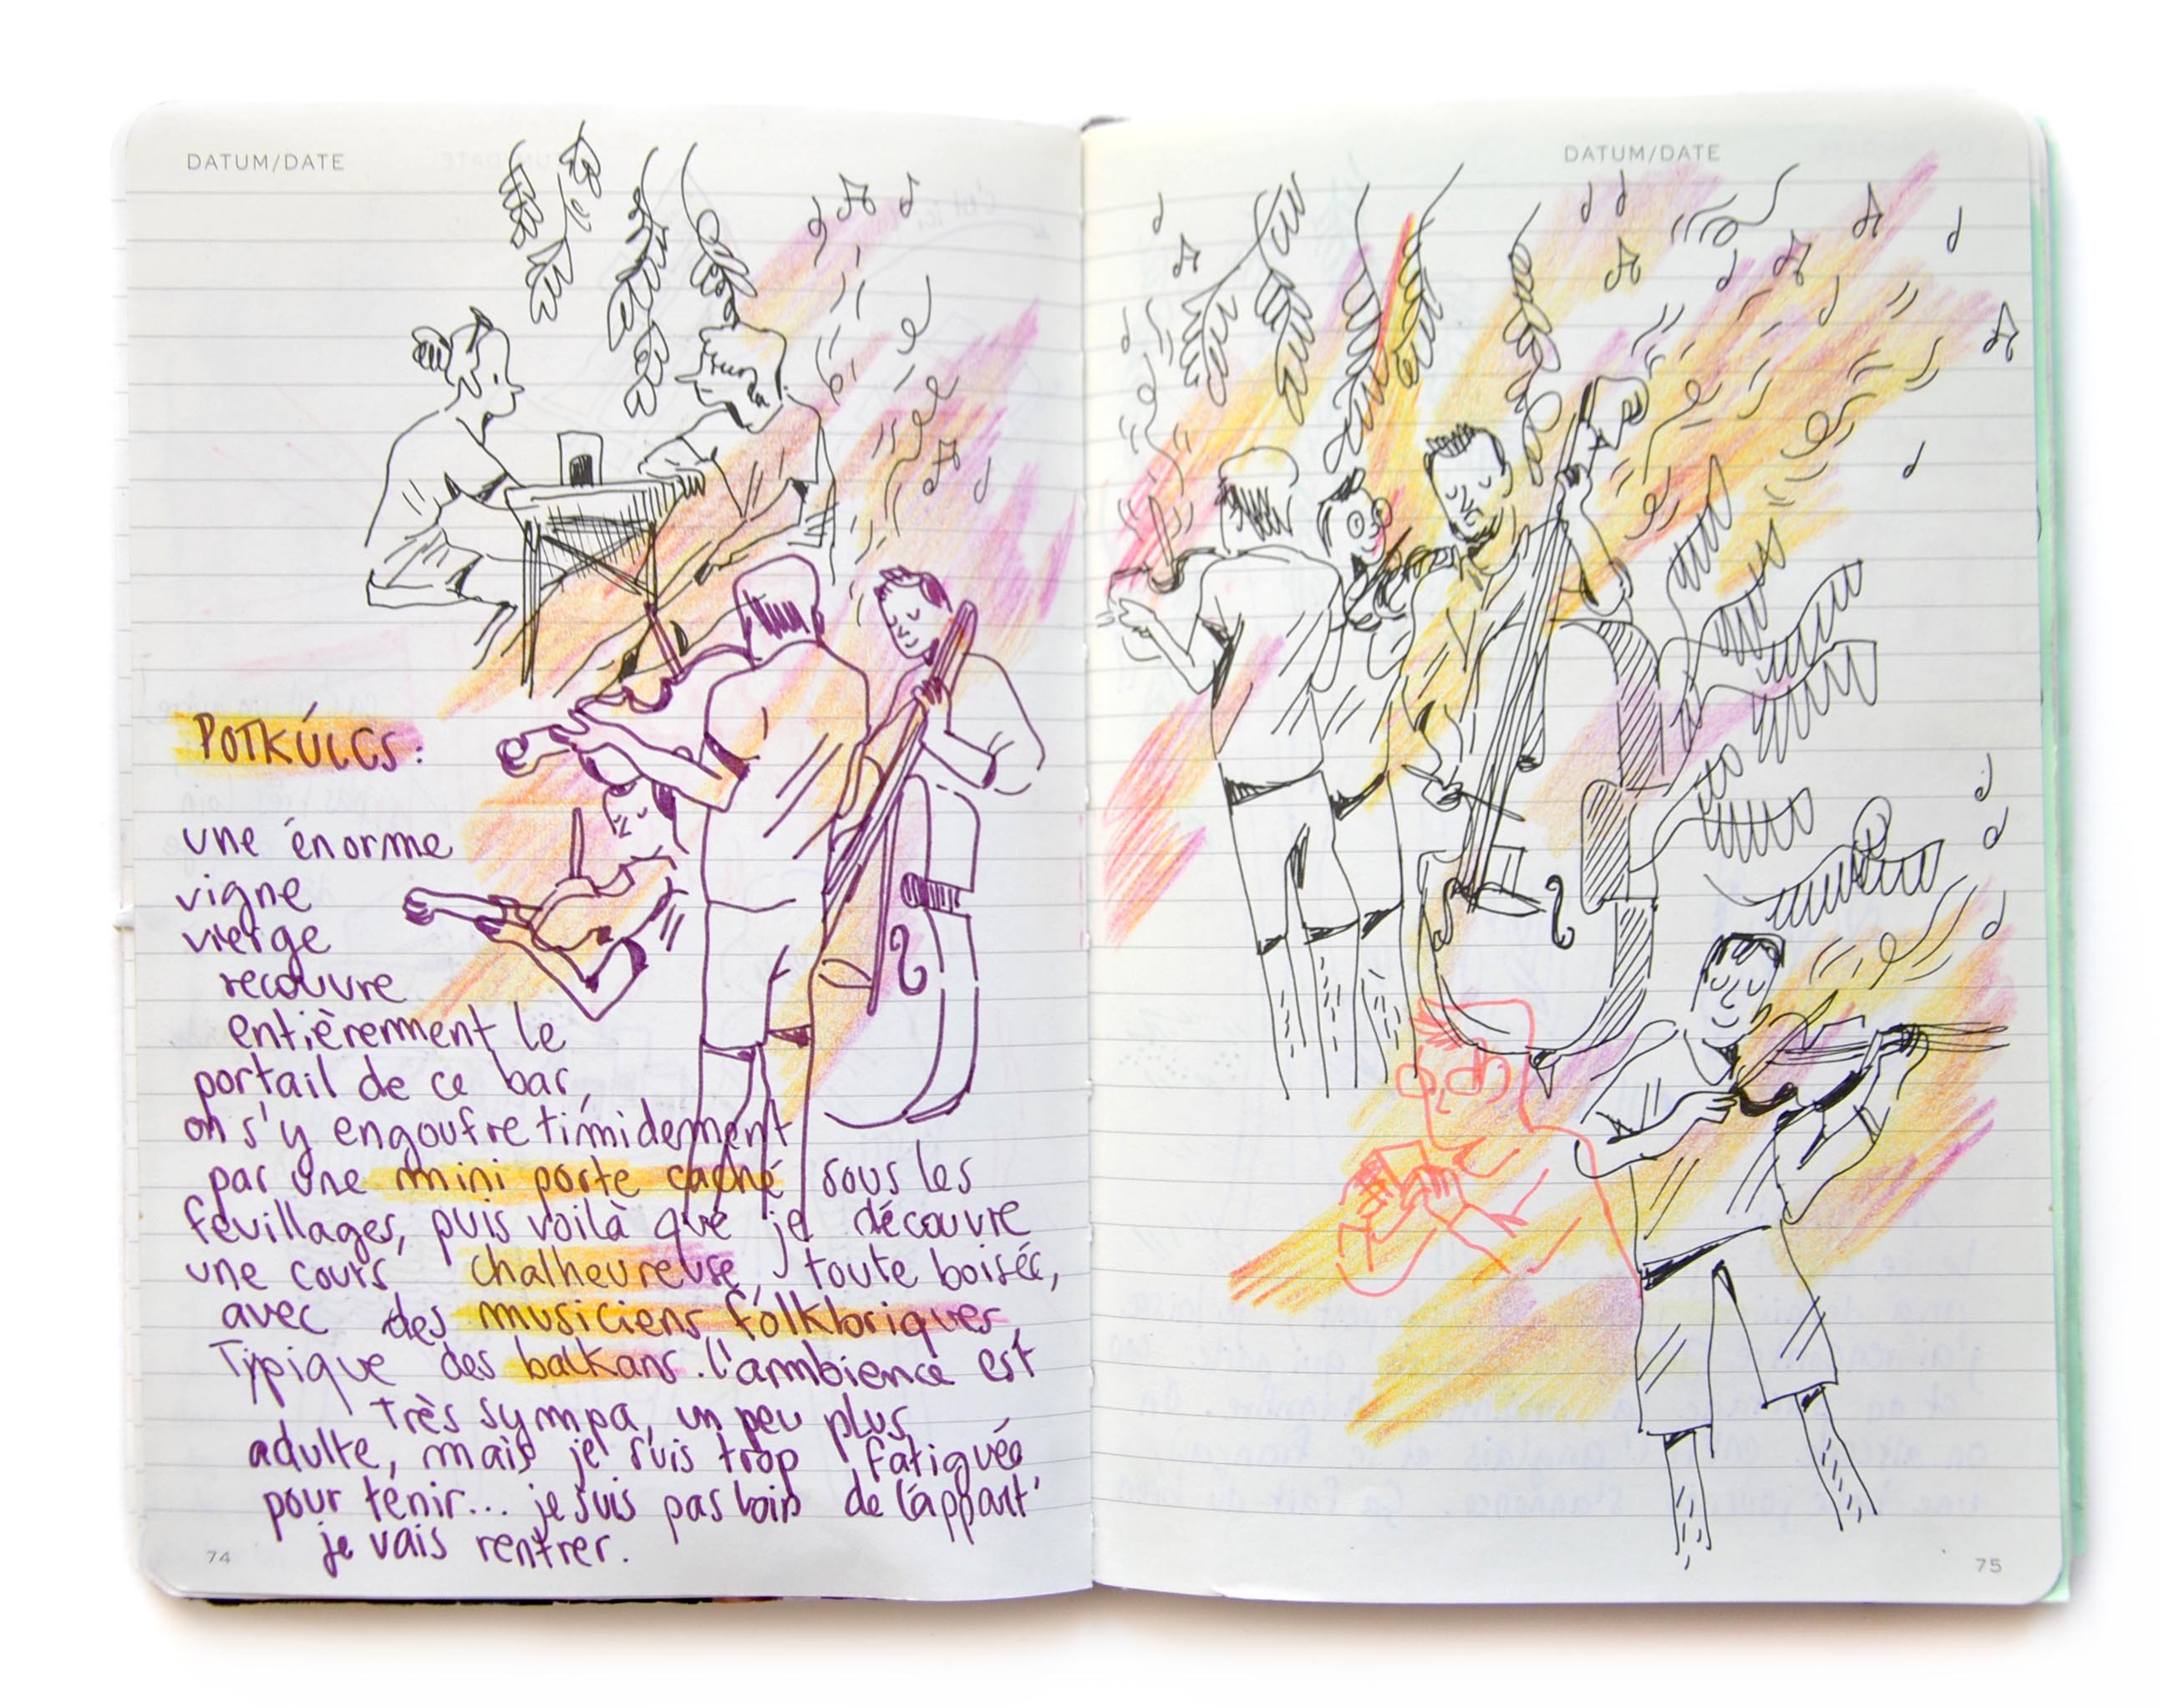 DATUM/DATE
POTKÚLCS:
une énorme
vigne
vierge
recouvre
entièrement le
portail de ce bar,
on s'y engoufre timidement
par une mini porte caché sous les
feuillages, puis voilà que je découvre
une cours chalheureuse, toute boisée,
avec des musiciens folkloriques,
Typique des balkans. l'ambience est
très sympa, un peu plus
adulte, mais je suis trop fatiguée
pour tenir... je suis pas loin de l'appart'
je vais rentrer.
74
DATUM/DATE
75